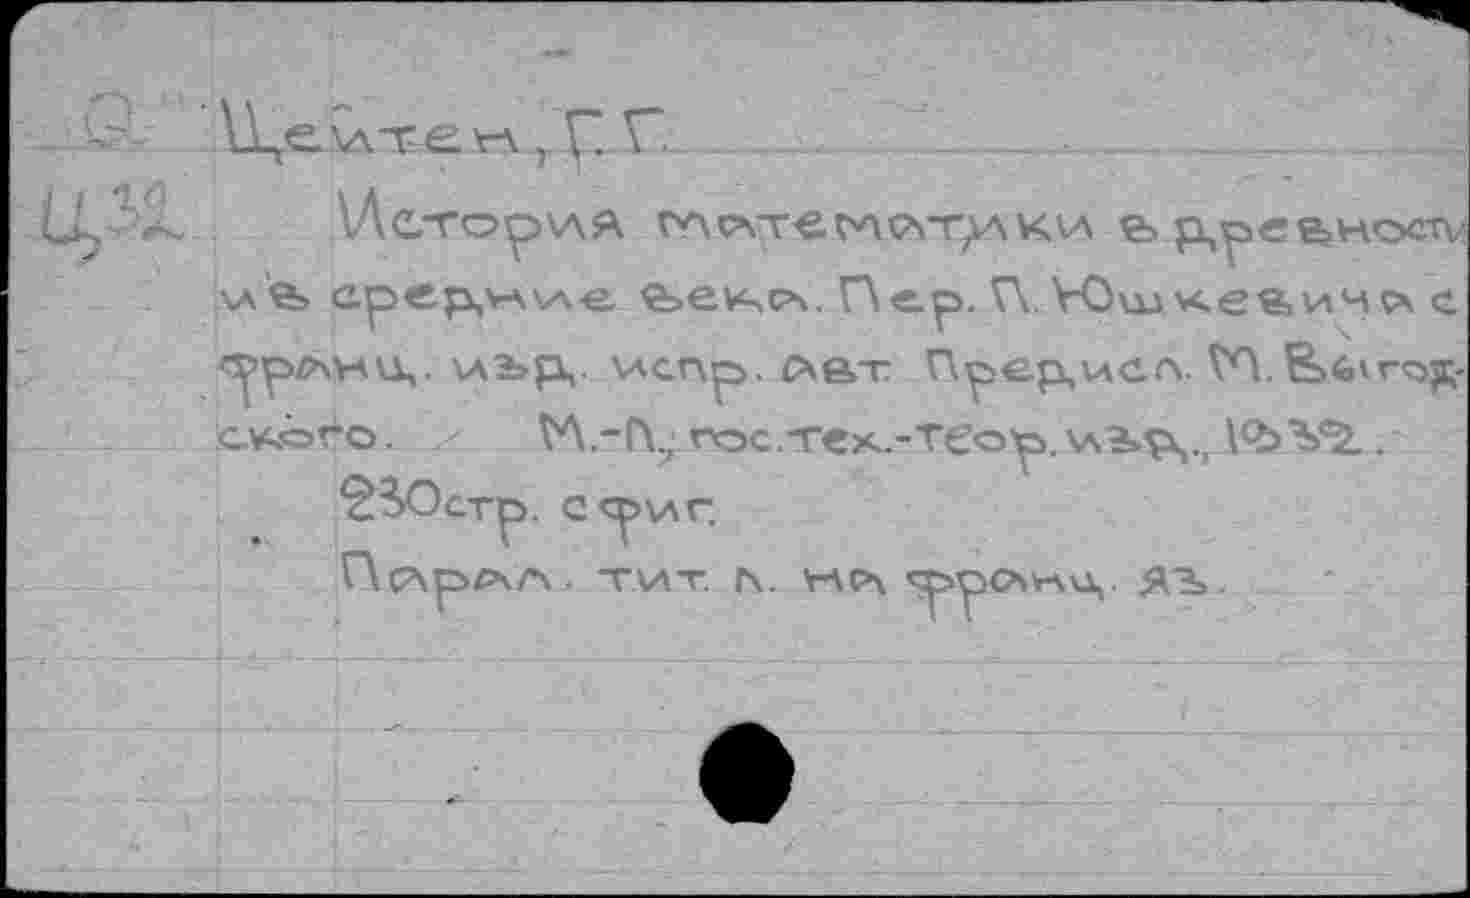 Цейтен, Г. Г.
История математики в древности
и в средние века. Пер. П. Юшкевича с
франц. изд. испр. авт. Предисл. М. Выгод-
ского. М.-Л., гос. тех.-теор. изд., 1932.
230стр. с фиг.
Парал. тит. л. на франц. яз.